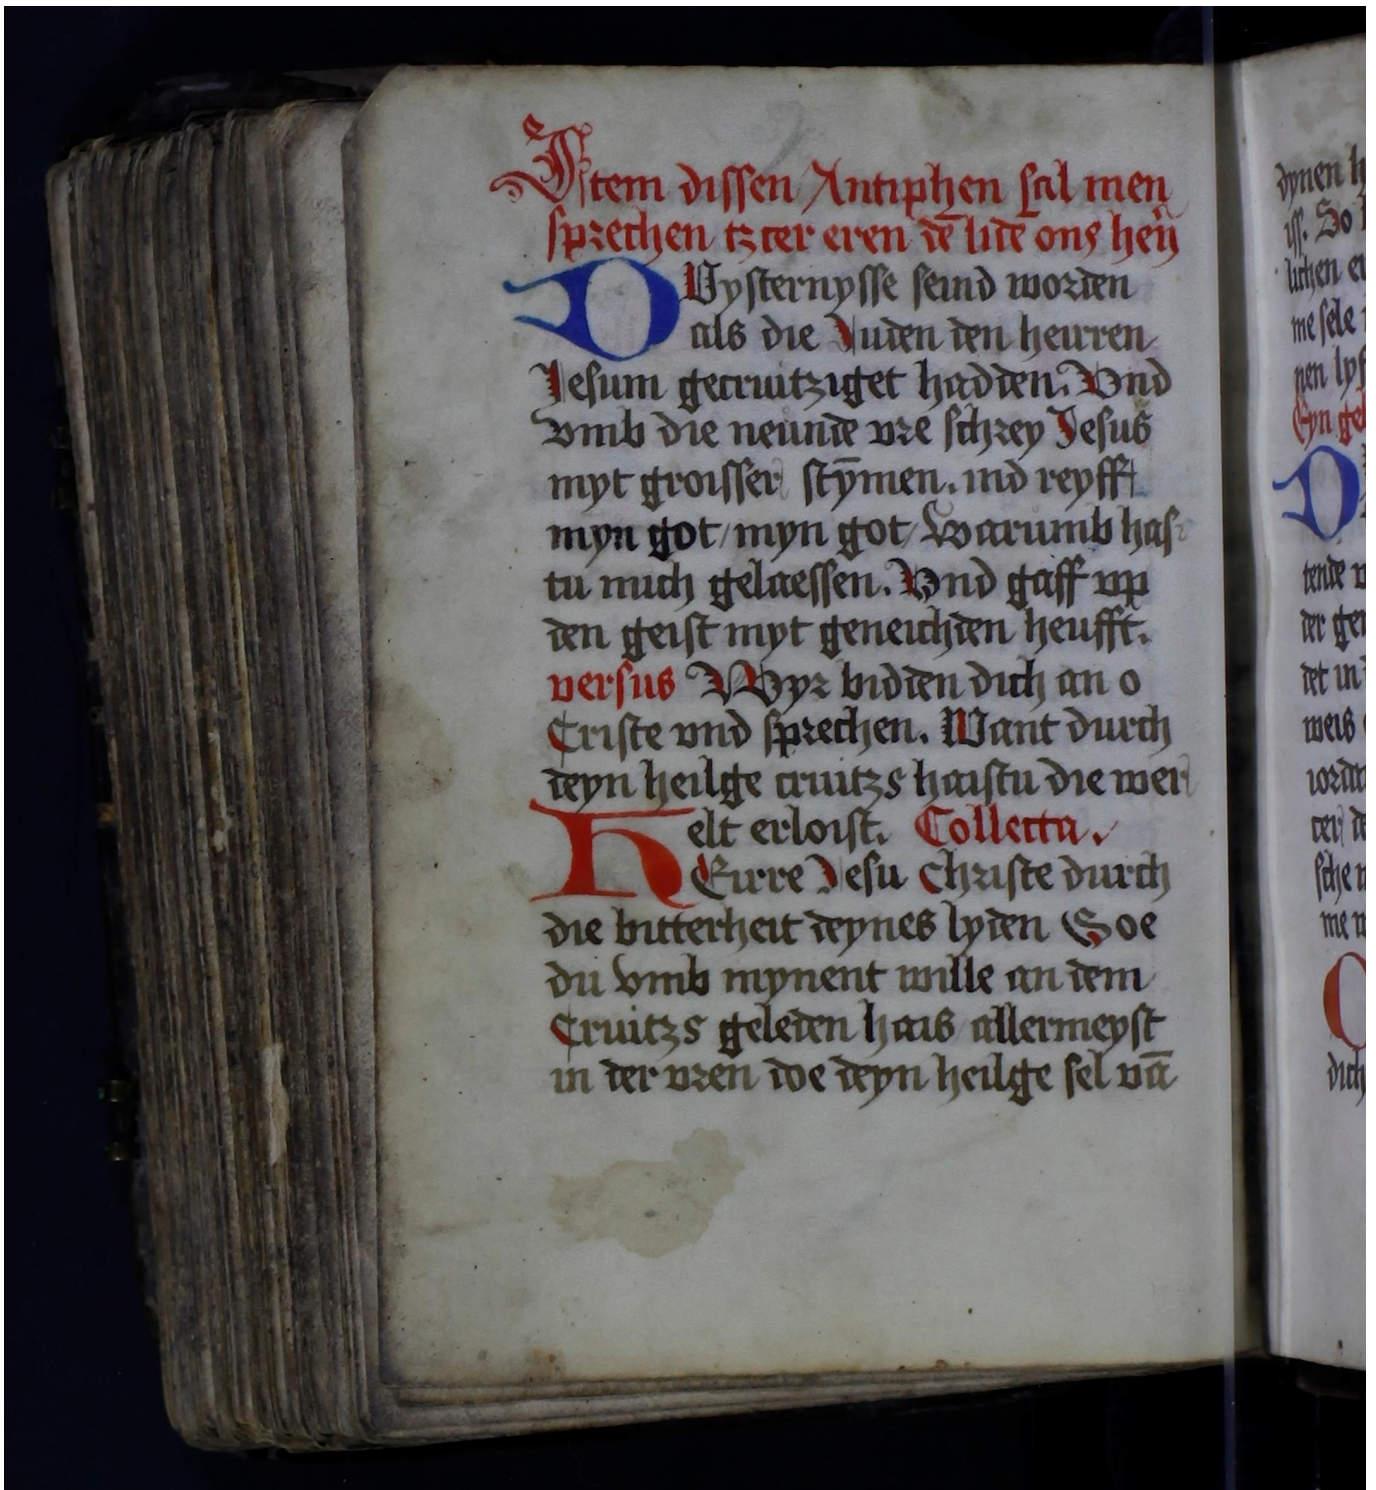 Item dissen Antiphen sal men
sprechen tzter eren dē lidē ons herñ
DVysternysse seind worden
als die Juden den heirren
Jesum gecruitziget hadden. Vnd
vmb die neunde vre schrey Jesus
myt groisser stȳmen. ind reyff
myn got / myn got / Warumb has
tu mich gelaessen. Vnd gaff vp
den geist myt geneichden heufft.
versus Wyr bidden dich an o
Criste vnd sprechen. Want durch
deyn heilge cruitzs haistu die wer
elt erloist. Collecta.
HEirre Jesu Christe durch
die bitterheit deynes lyden Soe
du vmb mynent wille an dem
Cruitzs geleden hais allermeyst
in der vren doe deyn heilge sel vā
dynen
iss. So
lichen
me sele
nen
Eyn
D
tende
der
det in
weis
dich